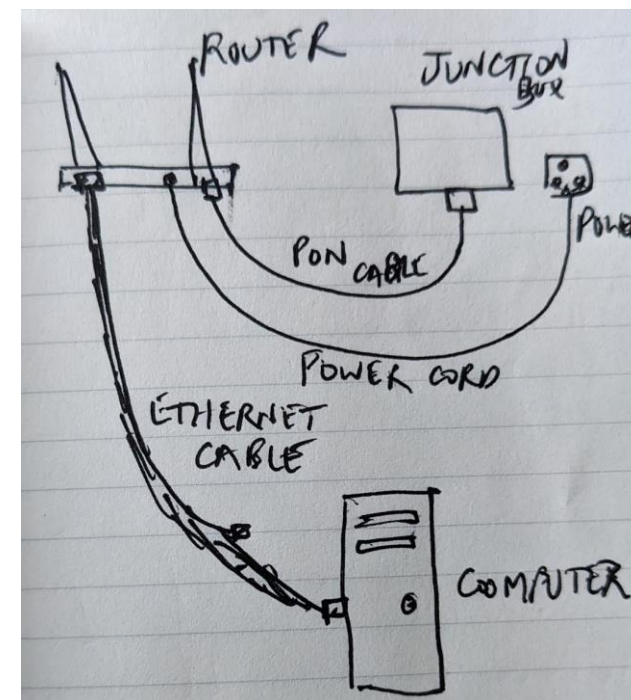 ROUTER
JUNCTION
BOX
POWE
PON
CABLE
POWER CORD
ETHERNET
CABLE
COMPUTER